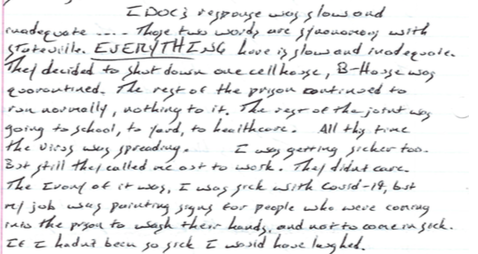 IDOC's response was slow and
inadequate .... Those two words are synonomous with
Stateville. EVERYTHING here is slow and inadequate.
They decided to shut down one cellhouse, B-House was
quarantined. The rest of the prison continued to
run normally, nothing to it. The rest of the joint was
going to school, to yard, to healthcare. All this time
the virus was spreading. I was getting sicker too.
But still they called me out to work. They didnt care.
The Irony of it was, I was sick with Covid-19, but
my job was painting signs for people who were coming
into the prison to wash their hands, and not to come in sick.
If I hadnt been so sick I would have laughed.